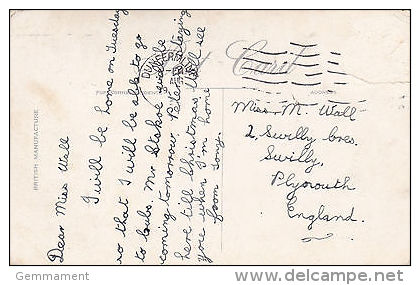 Post Card
DUNFERMLINE
FOR CORRESPONDENCE
ADDRESS
BRITISH MANUFACTURE
Dear Miss Wall
I will be home on Tuesday
so that I will be able to go
to cubs. Mr Stakoe will be
coming tomorrow. Peter is staying
here till Christmas. Will see
you when I'm home
from Tony.
Miss. M. Wall
2, Swilly Cres.
Swilly,
Plymouth
England.
Gemmament
www.delcampe.net